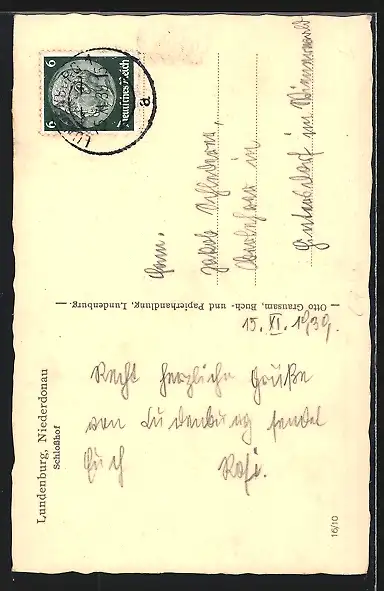 Lundenburg, Niederdonau
Schloßhof
15. XI. 1939.
Recht herzliche Grüße
von Lundenburg sendet
Euch Rosi.
16/10
— Otto Grausam, Buch- und Papierhandlung, Lundenburg. —
6 6
Deutsches Reich
a
Fam.
Jakob
Oberlehrer in
im Wienerwald